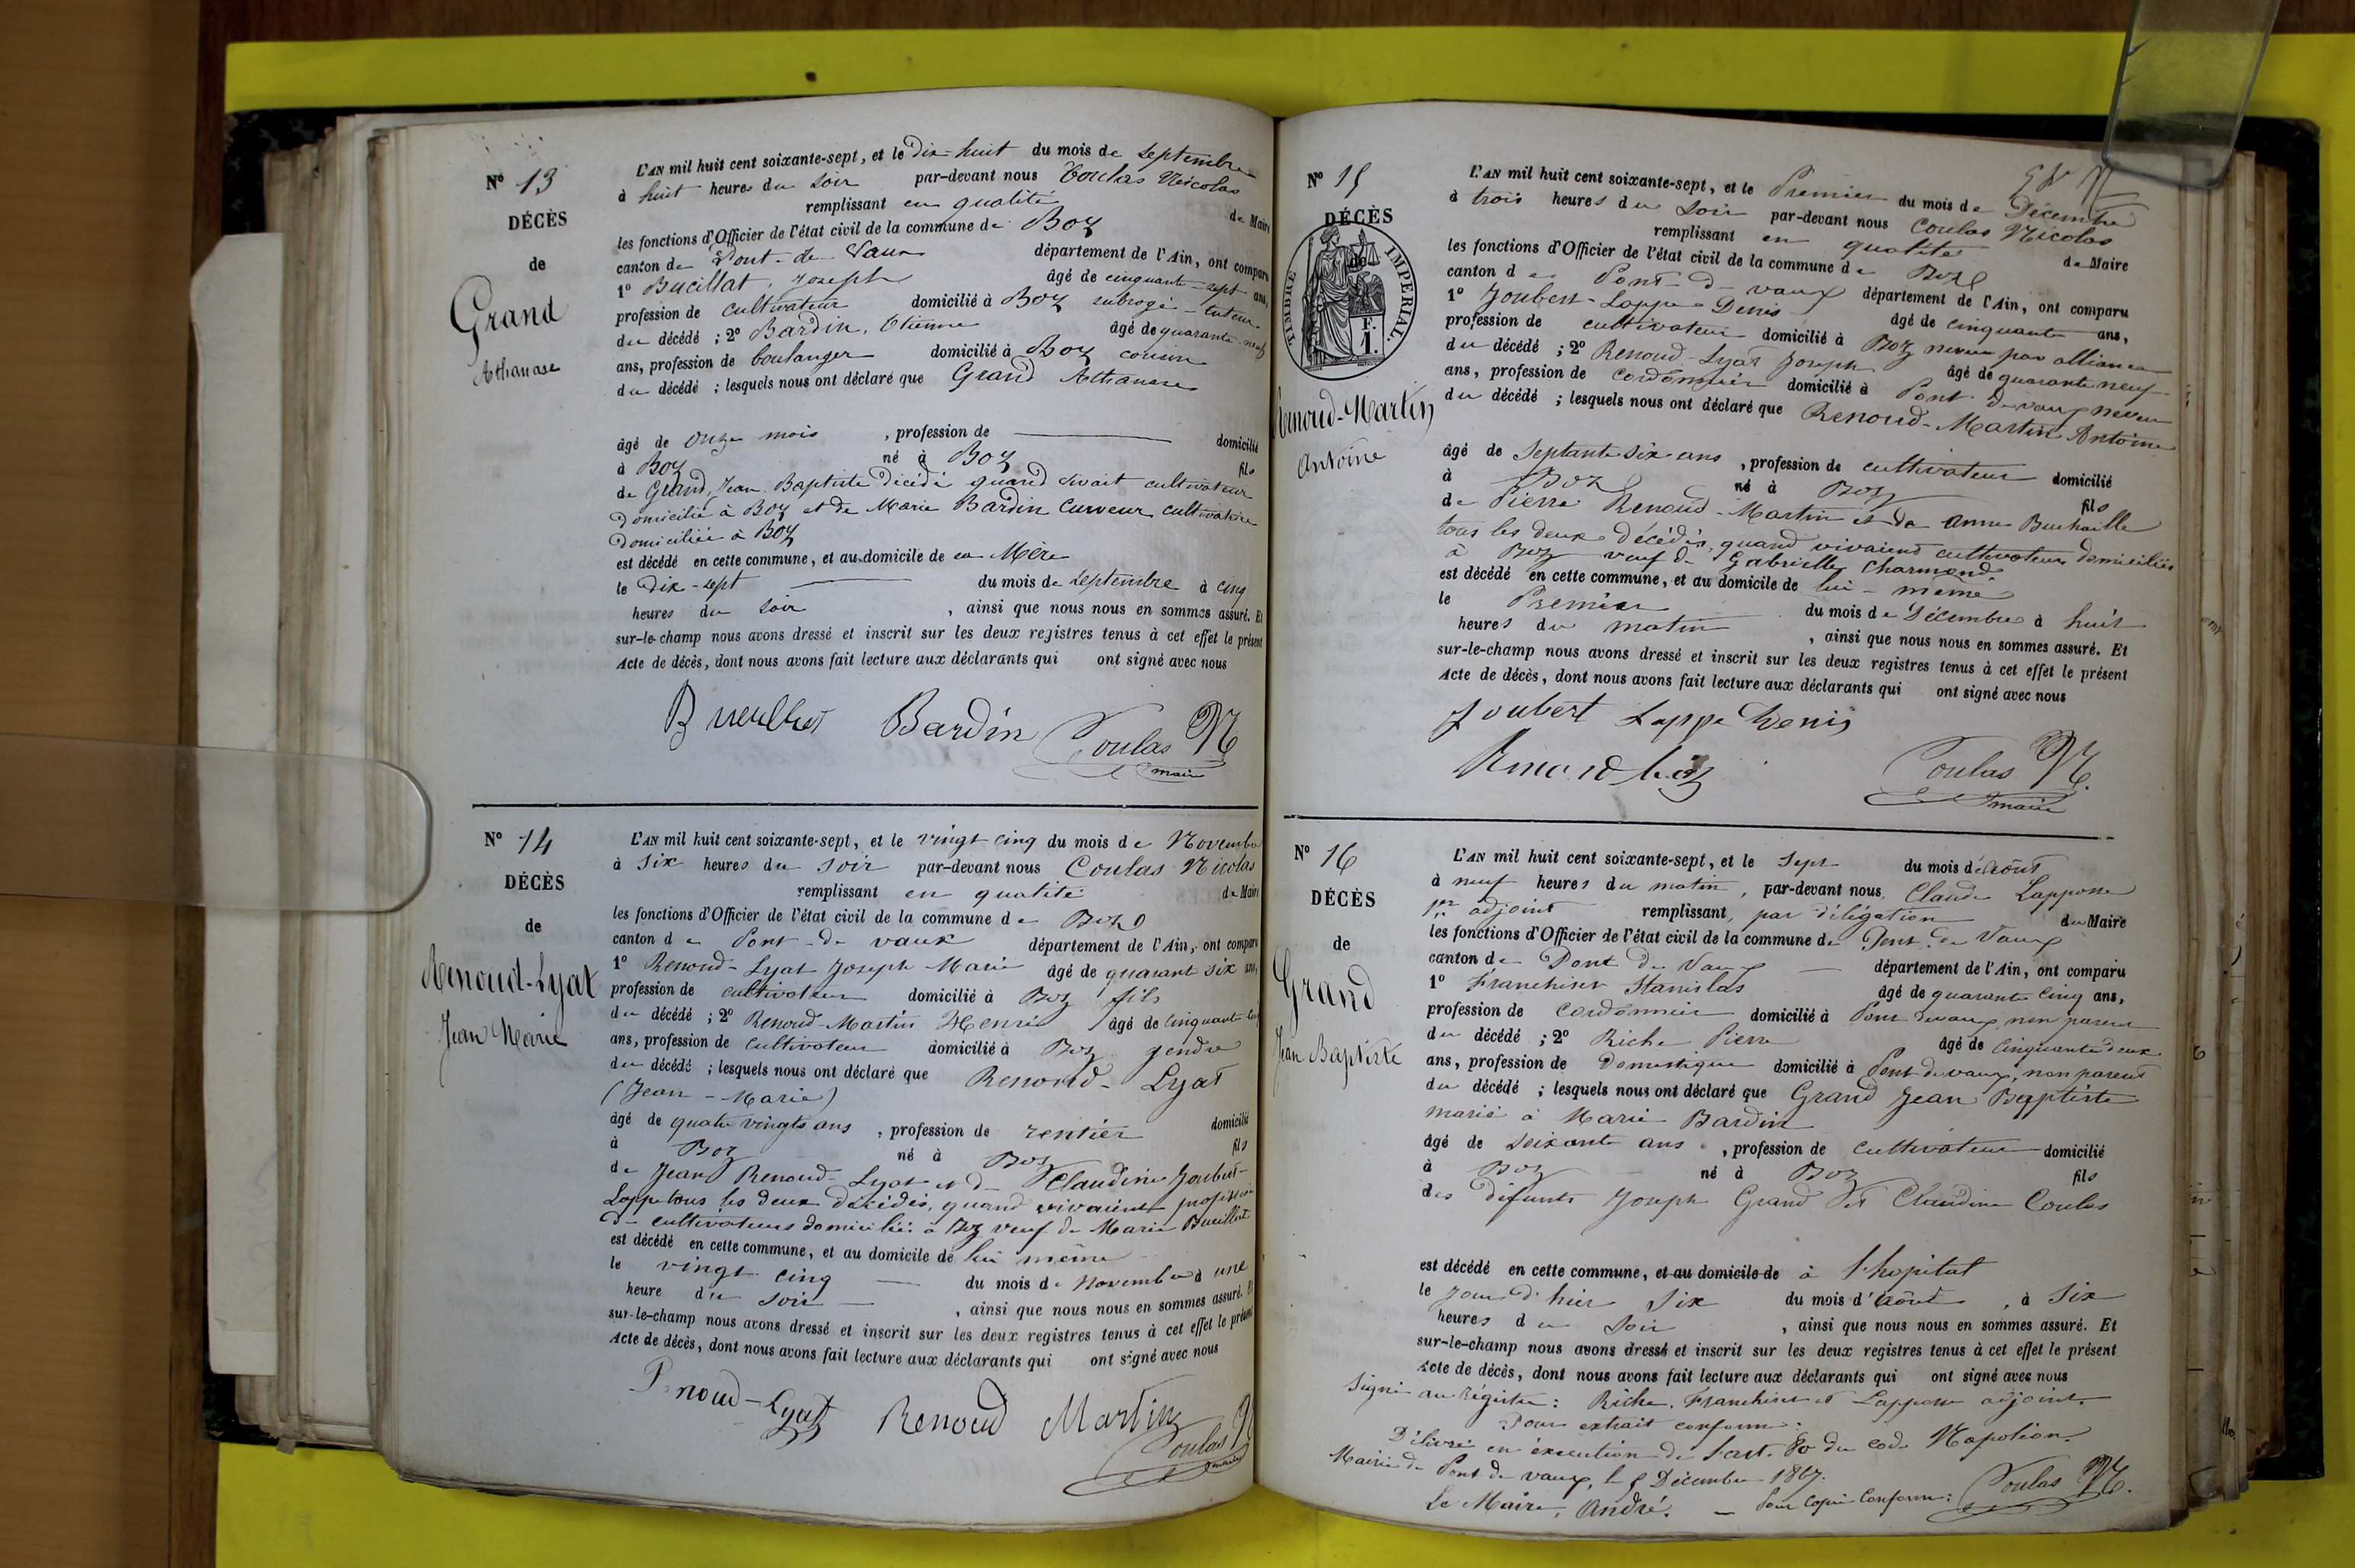 N° 13
DÉCÈS
de
Grand
Athanase
L'AN mil huit cent soixante-sept, et le Dix-huit du mois de Septembre
à huit heures du soir par-devant nous Coulas Nicolas
remplissant en qualité de Maire
les fonctions d'Officier de l'état civil de la commune de Boz
canton de Pont-de-Vaux département de l'Ain, ont comparu
1° Bucillat, Joseph âgé de cinquante-sept ans,
profession de cultivateur domicilié à Boz subrogé-tuteur
du décédé ; 2° Bardin, Etienne âgé de quarante-neuf
ans, profession de boulanger domicilié à Boz cousin
du décédé ; lesquels nous ont déclaré que Grand Athanase
âgé de onze mois , profession de domicilié
à Boz né à Boz fils
de Grand, Jean Baptiste Décédé quand vivait cultivateur
Domicilié à Boz et de Marie Bardin cultivatrice
Domiciliée à Boz
est décédé en cette commune, et au domicile de sa Mère
le Dix-sept du mois de Septembre à cinq
heures du soir , ainsi que nous nous en sommes assuré. Et
sur-le-champ nous avons dressé et inscrit sur les deux registres tenus à cet effet le présent
Acte de décès, dont nous avons fait lecture aux déclarants qui ont signé avec nous
Bardin Coulas N
maire
N° 14
DÉCÈS
de
Renoud-Lyat
Jean Marie
L'AN mil huit cent soixante-sept, et le vingt cinq du mois de Novembre
à six heures du soir par-devant nous Coulas Nicolas
remplissant en qualité de Maire
les fonctions d'Officier de l'état civil de la commune de Boz
canton de Pont-de-vaux département de l'Ain, ont comparu
1° Renoud-Lyat Joseph Marie âgé de quarant six ans,
profession de cultivateur domicilié à Boz fils
du décédé ; 2° Renoud-Martin Henri âgé de cinquante
ans, profession de cultivateur domicilié à Boz gendre
du décédé ; lesquels nous ont déclaré que Renoud-Lyat
(Jean-Marie)
âgé de quatre vingts ans , profession de rentier domicilié
à Boz né à Boz fils
de Jean Renoud-Lyat et de Claudine Joubert-
Loppe tous les deux décédés, quand vivaient profession
de cultivateurs domiciliés à Boz veuf de Marie Bucillat
est décédé en cette commune, et au domicile de lui même
le vingt cinq du mois de Novembre à une
heure du soir , ainsi que nous nous en sommes assuré. Et
sur-le-champ nous avons dressé et inscrit sur les deux registres tenus à cet effet le présent
Acte de décès, dont nous avons fait lecture aux déclarants qui ont signé avec nous
Renoud-Lyat Renoud Martin
Coulas N
maire
N° 15
DÉCÈS
de
TIMBRE IMPERIAL.
F.
1.
Renoud-Martin
Antoine
L'AN mil huit cent soixante-sept, et le Premier du mois de Décembre
à trois heures du soir par-devant nous Coulas Nicolas
remplissant en qualité de Maire
les fonctions d'Officier de l'état civil de la commune de Boz
canton de Pont-de-vaux département de l'Ain, ont comparu
1° Joubert-Loppe Denis âgé de cinquante ans,
profession de cultivateur domicilié à Boz neveu par alliance
du décédé ; 2° Renoud-Lyat Joseph âgé de quarante neuf
ans, profession de cordonnier domicilié à Pont-de-vaux neveu
du décédé ; lesquels nous ont déclaré que Renoud-Martin Antoine
âgé de Septante six ans , profession de cultivateur domicilié
à Boz né à Boz fils
de Pierre Renoud-Martin et de Anne Buchaille
tous les deux décédés, quand vivaient cultivateurs domiciliés
à Boz veuf de Gabrielle Charmond.
est décédé en cette commune, et au domicile de lui-même
le Premier du mois de Décembre à huit
heures du matin , ainsi que nous nous en sommes assuré. Et
sur-le-champ nous avons dressé et inscrit sur les deux registres tenus à cet effet le présent
Acte de décès, dont nous avons fait lecture aux déclarants qui ont signé avec nous
Joubert Loppe Denis
Coulas N
maire
N° 16
DÉCÈS
de
Grand
Jean Baptiste
L'AN mil huit cent soixante-sept, et le Sept du mois d'Août
à neuf heures du matin, par-devant nous Claude Lapposse
1er adjoint remplissant, par délégation du Maire
les fonctions d'Officier de l'état civil de la commune de Pont de Vaux
canton de Pont de Vaux département de l'Ain, ont comparu
1° Franchiser Stanislas âgé de quarante cinq ans,
profession de cordonnier domicilié à Pont devaux, non parent
du décédé ; 2° Riche Pierre âgé de cinquante deux
ans, profession de Domestique domicilié à Pont de vaux, non parent
du décédé ; lesquels nous ont déclaré que Grand Jean Baptiste
marié à Marie Bardin
âgé de soixante ans , profession de cultivateur domicilié
à Boz né à Boz fils
des défunts Joseph Grand et Claudine Coulas
est décédé en cette commune, et au domicile de à l'hopital
le jour d'hier six du mois d'août , à six
heures du soir , ainsi que nous nous en sommes assuré. Et
sur-le-champ nous avons dressé et inscrit sur les deux registres tenus à cet effet le présent
Acte de décès, dont nous avons fait lecture aux déclarants qui ont signé avec nous
Signé au Régistre : Riche, Franchiser et Lapposse adjoint.
Pour extrait conforme :
Délivré en éxécution de l'art. 80 du code Napoléon.
Mairie de Pont de vaux, le 5 Décembre 1867.
Le Maire, André. — Pour Copie Conforme : Coulas N.